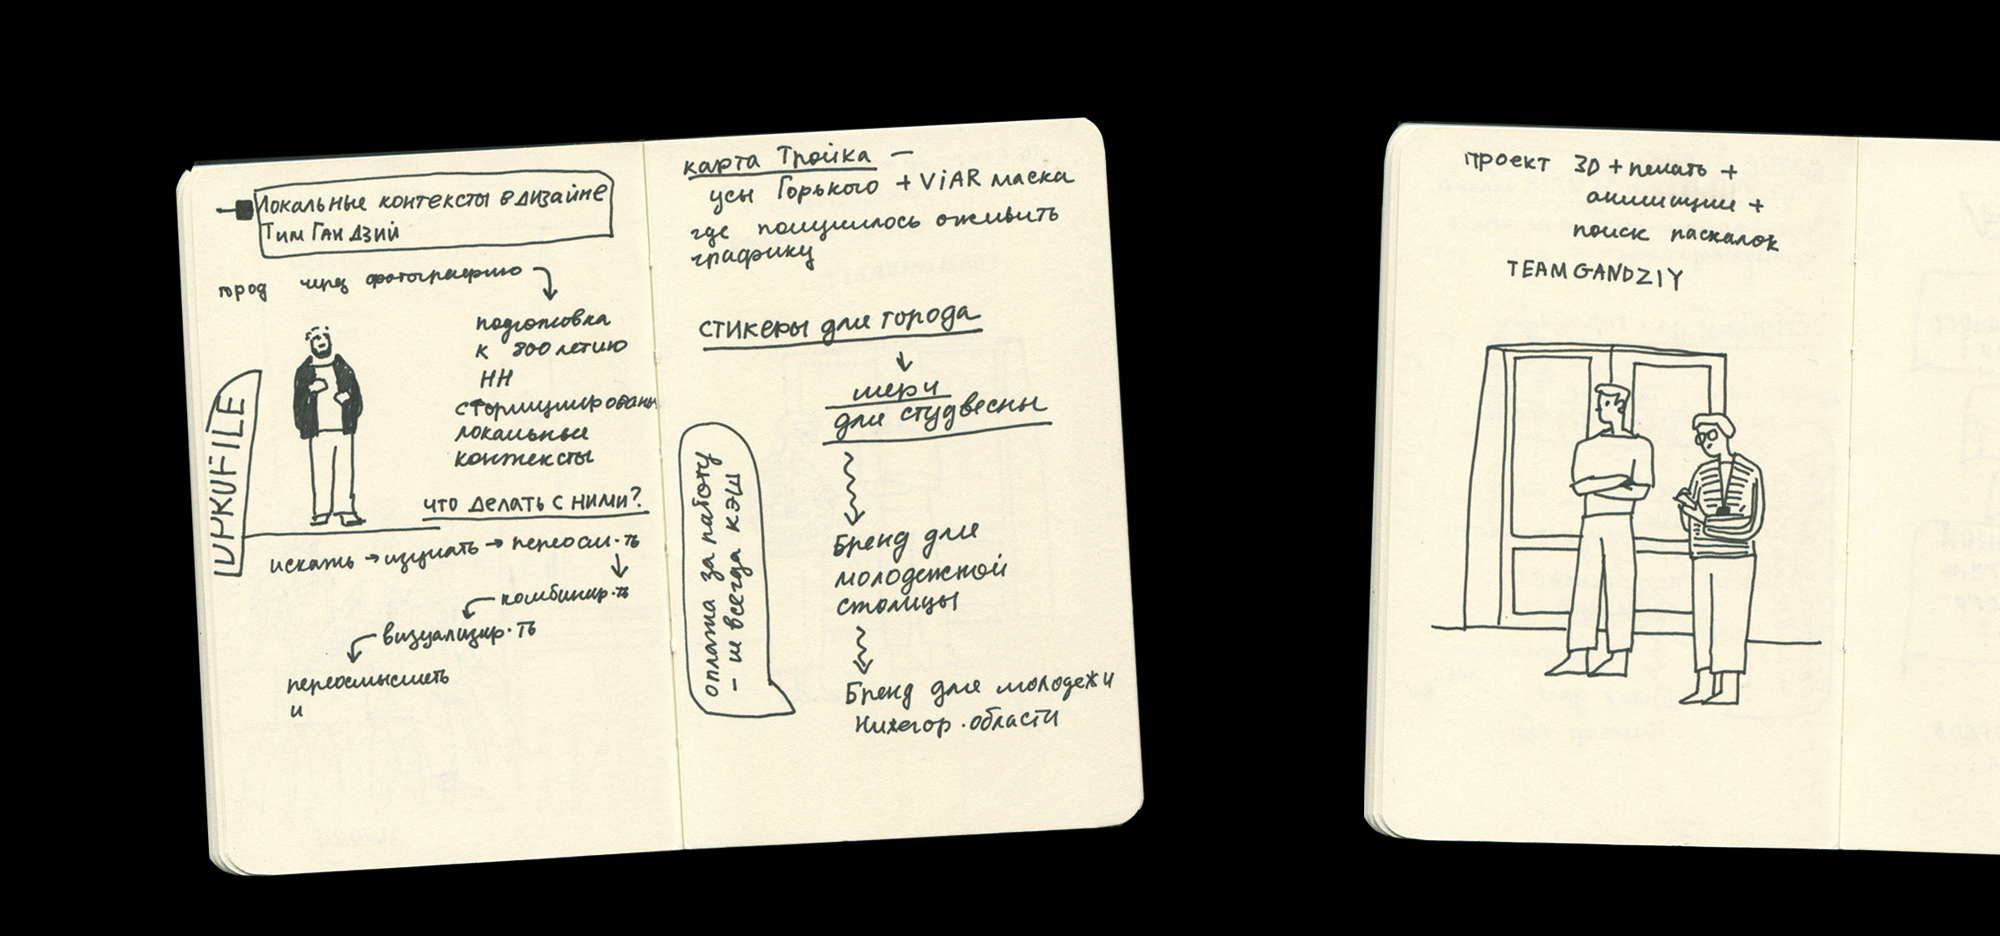 Локальные контексты в дизайне
Тим Гандзий
город через фотографию
подготовка
к 800 летию
НН
сформулированы
локальные
контексты
что делать с ними?
искать → изучать → переосм-ть
комбинир-ть
визуализир-ть
переосмыслить
и
карта Тройка —
усы Горького + ViAR маска
где получилось оживить
графику
стикеры для города
мерч
для студвесны
оплата за работу
– не всегда кэш
Бренд для
молодежной
столицы
Бренд для молодежи
Нижегор. области
проект 3D + печать +
анимации +
поиск пасхалок
TEAMGANDZIY